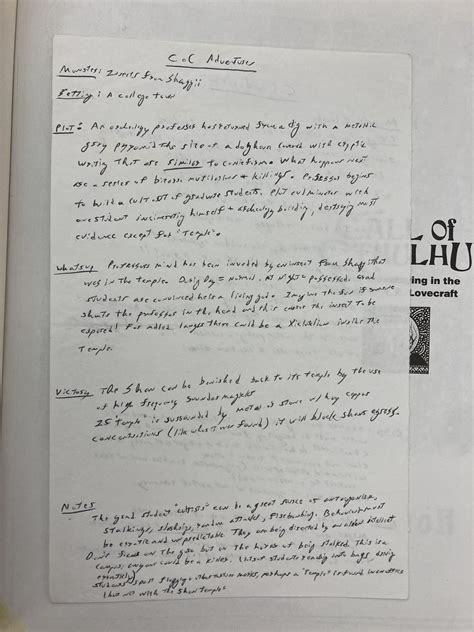 CoC Adventures
Monster: Insects from Shaggii
Setting: A college town
Plot: An archeology professor has returned from a dig with a metallic
grey pyramid the size of a doghouse covered with cryptic
writing that are similar to cuneiform. What happens next
are a series of bizarre mutilations + killings. Professor begins
to build a cult of graduate students. Plot culminates with
one student incinerating himself + archeology building, destroying most
evidence except for "Temple".
Whats up: Professors mind has been invaded by an insect from Shaggi that
was in the temple. During Day = normal. At Night = possessed. Grad
students are convinced he is a living god. Imagine the fun if someone
shoots the professor in the head and this causes the insect to be
exposed! For added laughs there could be a Xiclotlan inside the
Temple.
Victory: The Shan can be banished back to its temple by the use
of high frequency sound
If "Temple" is surrounded by metal or stone w/ high copper
concentrations (like what it was found) it will block Shan's egress.
Notes
The grad student "cultists" can be a great source of antagonism.
Stalkings, slashings, random attacks, firebombing. Behavior must
be erratic and unpredictable. They are being directed by an alien intellect
Don't focus on the but on the horror of being stalked. This is a
campus, anyone could be a killer.
students
has with the Shan Temple
L of
LHU
ing in the
Lovecraft